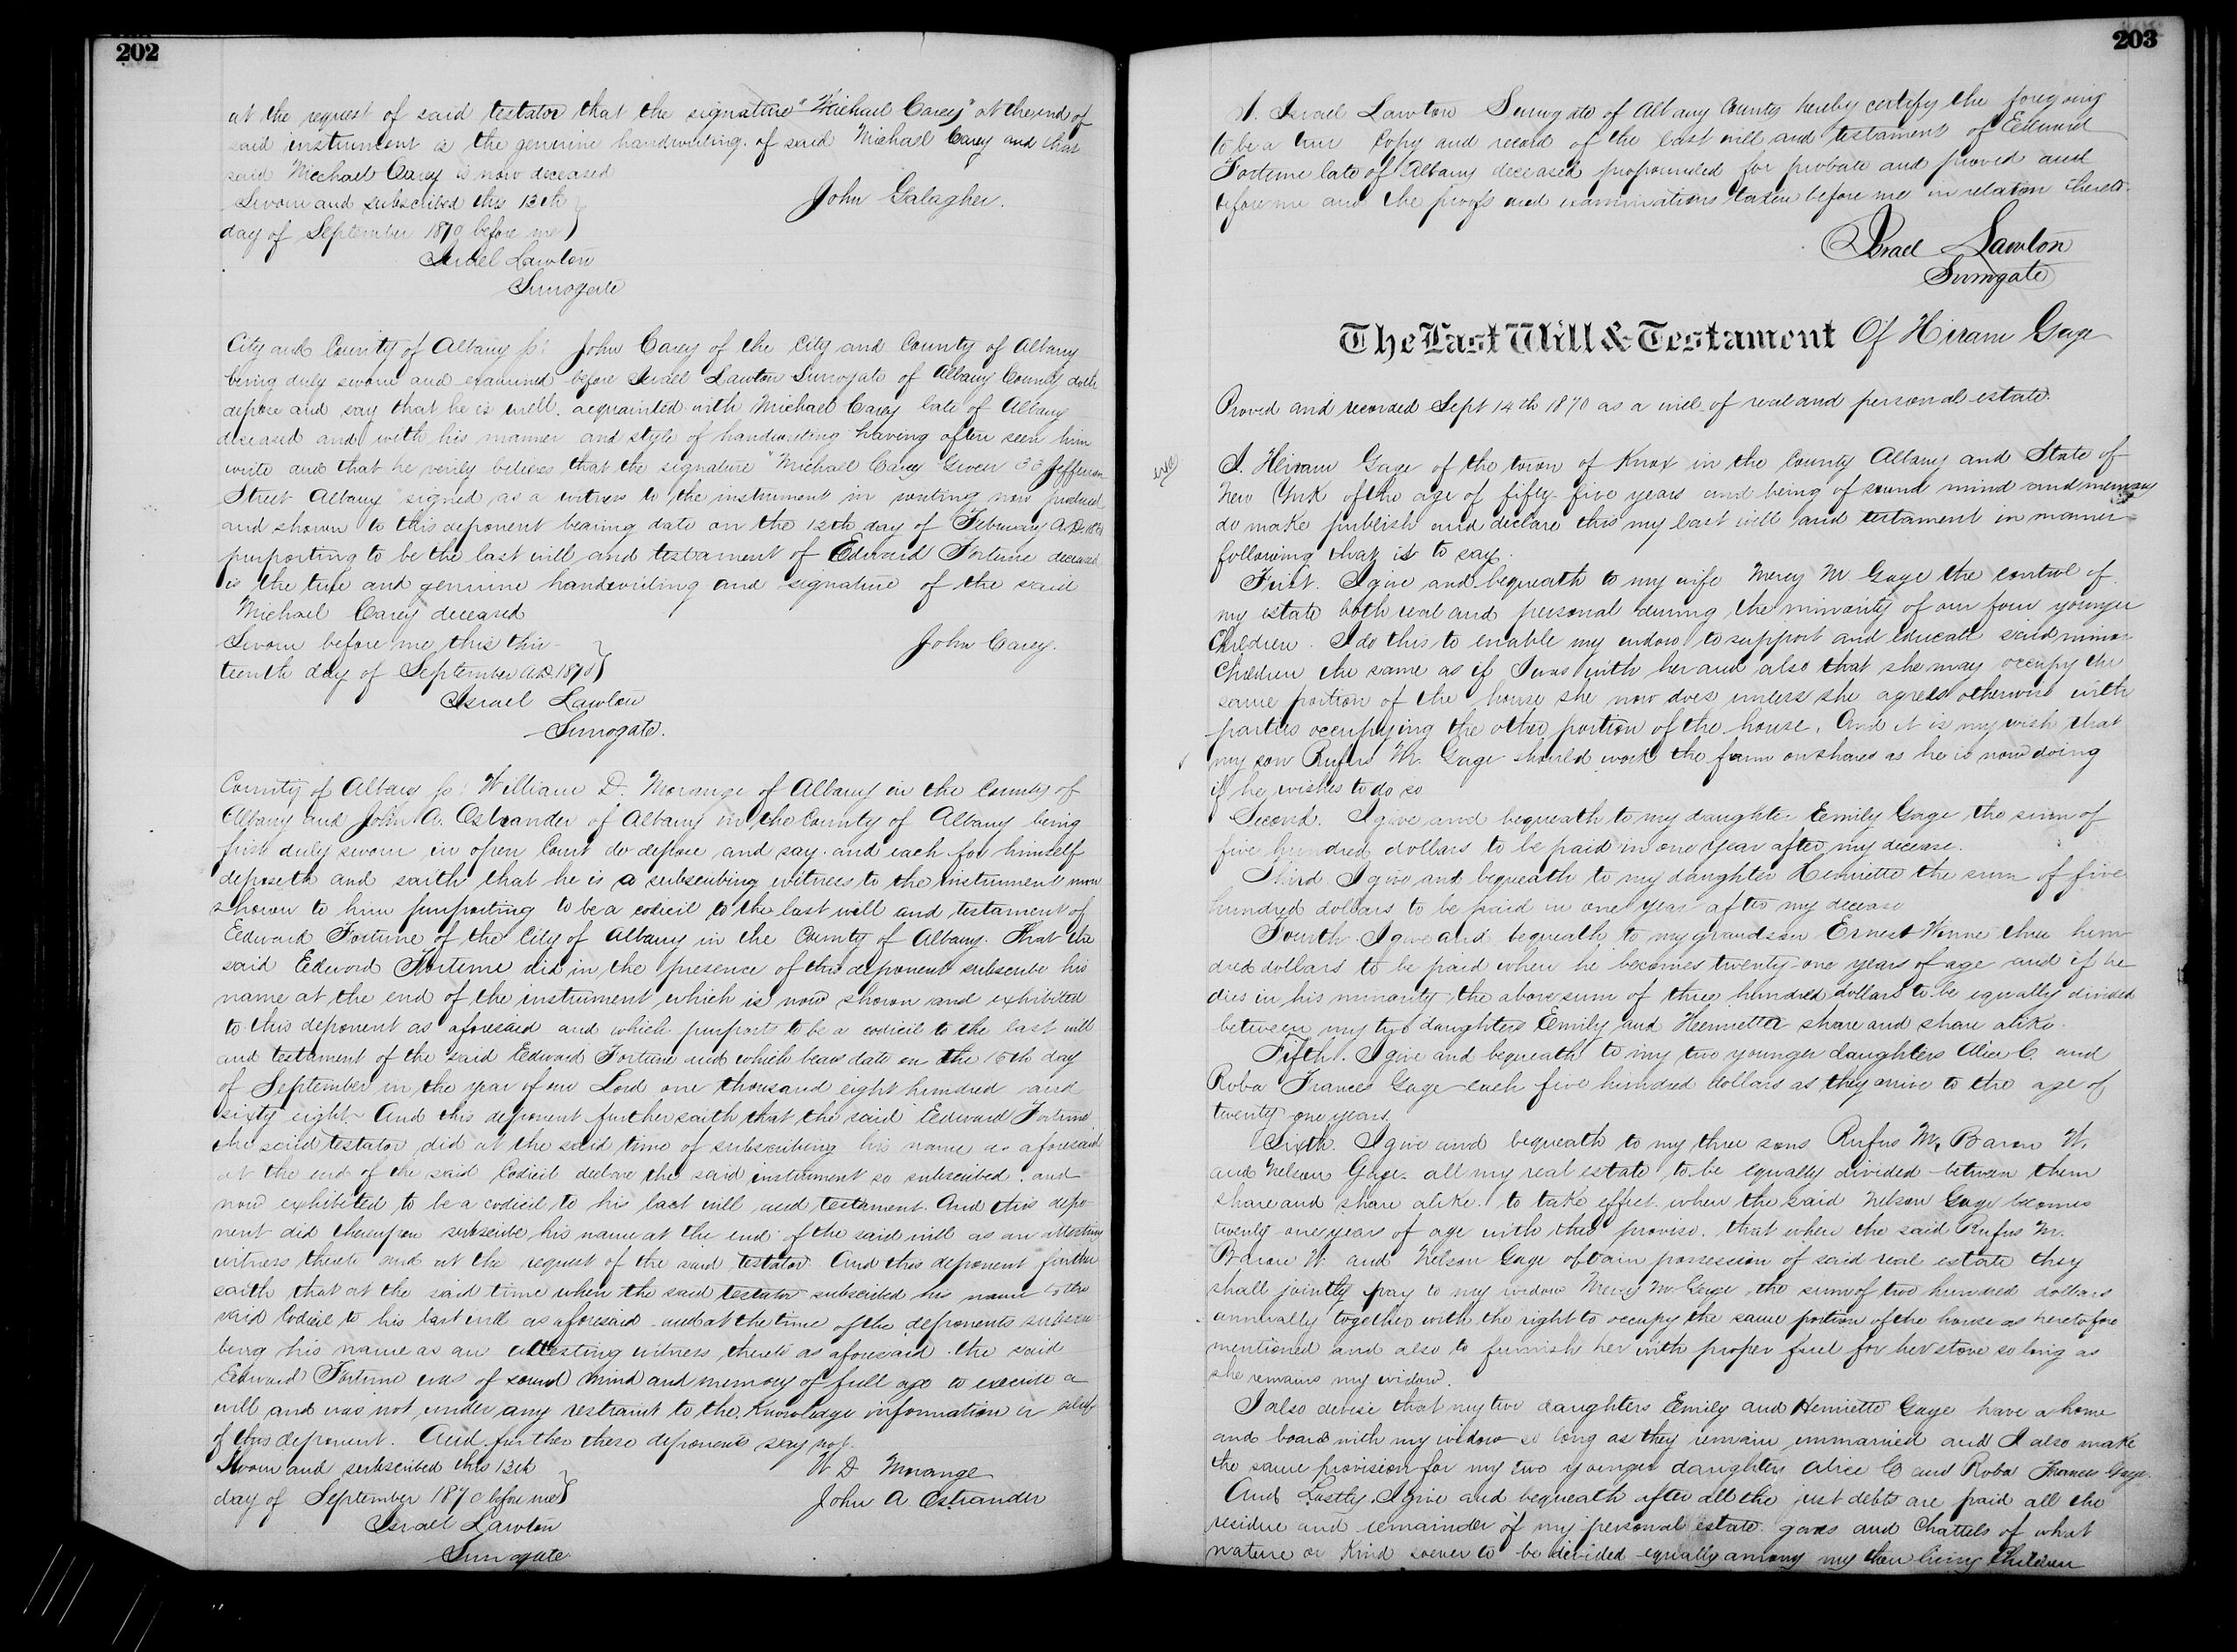 202
at the request of said testator that the signature "Michael Carey" at the end of
said instrument is the genuine handwriting of said Michael Carey and that
said Michael Carey is now deceased
Sworn and subscribed this 13th
John Galagher.
day of September 1870 before me
Israel Lawton
Surrogate
City and County of Albany ss: John Carey of the City and County of Albany
being duly sworn and examined before Israel Lawton Surrogate of Albany County doth
depose and say that he is well acquainted with Michael Carey late of Albany
deceased and with his manner and style of handwriting having often seen him
write and that he verily believes that the signature "Michael Carey Green 33 Jefferson
Street Albany" signed as a witness to the instrument in writing now produced
and shown to this deponent bearing date on the 12th day of February A.D.
purporting to be the last will and testament of Edward Fortune deceased
is the true and genuine handwriting and signature of the said
Michael Carey deceased
Sworn before me this thir-
John Carey.
teenth day of September A.D. 1870
Israel Lawton
Surrogate.
County of Albany ss: William D. Morange of Albany in the County of
Albany and John A. Ostrander of Albany in the County of Albany being
first duly sworn in open Court do depose and say and each for himself
deposeth and saith that he is a subscribing witness to the instrument now
shown to him purporting to be a codicil to the last will and testament of
Edward Fortune of the City of Albany in the County of Albany. That the
said Edward Fortune did in the presence of this deponent subscribe his
name at the end of the instrument which is now shown and exhibited
to this deponent as aforesaid and which purports to be a codicil to the last will
and testament of the said Edward Fortune and which bears date on the 15th day
of September in the year of our Lord one thousand eight hundred and
sixty eight. And this deponent further saith that the said Edward Fortune
the said testator did at the said time of subscribing his name as aforesaid
at the end of the said Codicil declare the said instrument so subscribed and
now exhibited to be a codicil to his last will and testament. And this depo-
nent did thereupon subscribe his name at the end of the said will as an attesting
witness thereto and at the request of the said testator. And this deponent further
saith that at the said time when the said testator subscribed his name to the
said Codicil to his last will as aforesaid and at the time of the deponents subscri-
bing his name as an attesting witness thereto as aforesaid the said
Edward Fortune was of sound mind and memory of full age to execute a
will and was not under any restraint to the knowledge information or belief
of this deponent. And further these deponents say not.
Sworn and subscribed this 13th
W D Morange
day of September 1870 before me
John A Ostrander
Israel Lawton
Surrogate
203
I. Israel Lawton Surrogate of Albany County hereby certify the foregoing
to be a true copy and record of the last will and testament of Edward
Fortune late of Albany deceased propounded for probate and proved and
before me and the proofs and examinations taken before me in relation thereto
Israel Lawton
Surrogate
The Last Will & Testament Of Hiram Gage
Proved and recorded Sept 14th 1870 as a will of real and personal estate.
I. Hiram Gage of the town of Knox in the County Albany and State of
New York of the age of fifty five years and being of sound mind and memory
do make publish and declare this my last will and testament in manner
following that is to say.
First. I give and bequeath to my wife Mercy M. Gage the control of
my estate both real and personal during the minority of our four younger
Children. I do this to enable my widow to support and educate said minor
Children the same as if I was with her and also that she may occupy the
same portion of the house she now does unless she agrees otherwise with
parties occupying the other portion of the house. And it is my wish that
my son Rufus M. Gage should work the farm on shares as he is now doing
if he wishes to do so
Second. I give and bequeath to my daughter Emily Gage the sum of
five hundred dollars to be paid in one year after my decease.
Third I give and bequeath to my daughter Henrietta the sum of five
hundred dollars to be paid in one year after my decease
Fourth. I give and bequeath to my grandson Ernest Winne three hun-
dred dollars to be paid when he becomes twenty-one years of age and if he
dies in his minority the above sum of three hundred dollars to be equally divided
between my two daughters Emily and Henrietta share and share alike.
Fifth. I give and bequeath to my two younger daughters Alice C. and
Roba Frances Gage each five hundred dollars as they arrive to the age of
twenty one years
Sixth. I give and bequeath to my three sons Rufus M, Baron W.
and Nelson Gage all my real estate to be equally divided between them
share and share alike. to take effect when the said Nelson Gage becomes
twenty one years of age with this proviso. that when the said Rufus M.
Baron W. and Nelson Gage obtain possession of said real estate they
shall jointly pay to my widow Mercy M Gage the sum of two hundred dollars
annually together with the right to occupy the same portion of the house as heretofore
mentioned and also to furnish her with proper fuel for her stove so long as
she remains my widow.
I also devise that my two daughters Emily and Henrietta Gage have a home
and board with my widow so long as they remain unmarried and I also make
the same provision for my two younger daughters Alice C and Roba Frances Gage.
And Lastly. I give and bequeath after all the just debts are paid all the
residue and remainder of my personal estate goods and Chattels of what
nature or Kind soever to be devided equally among my then living Children